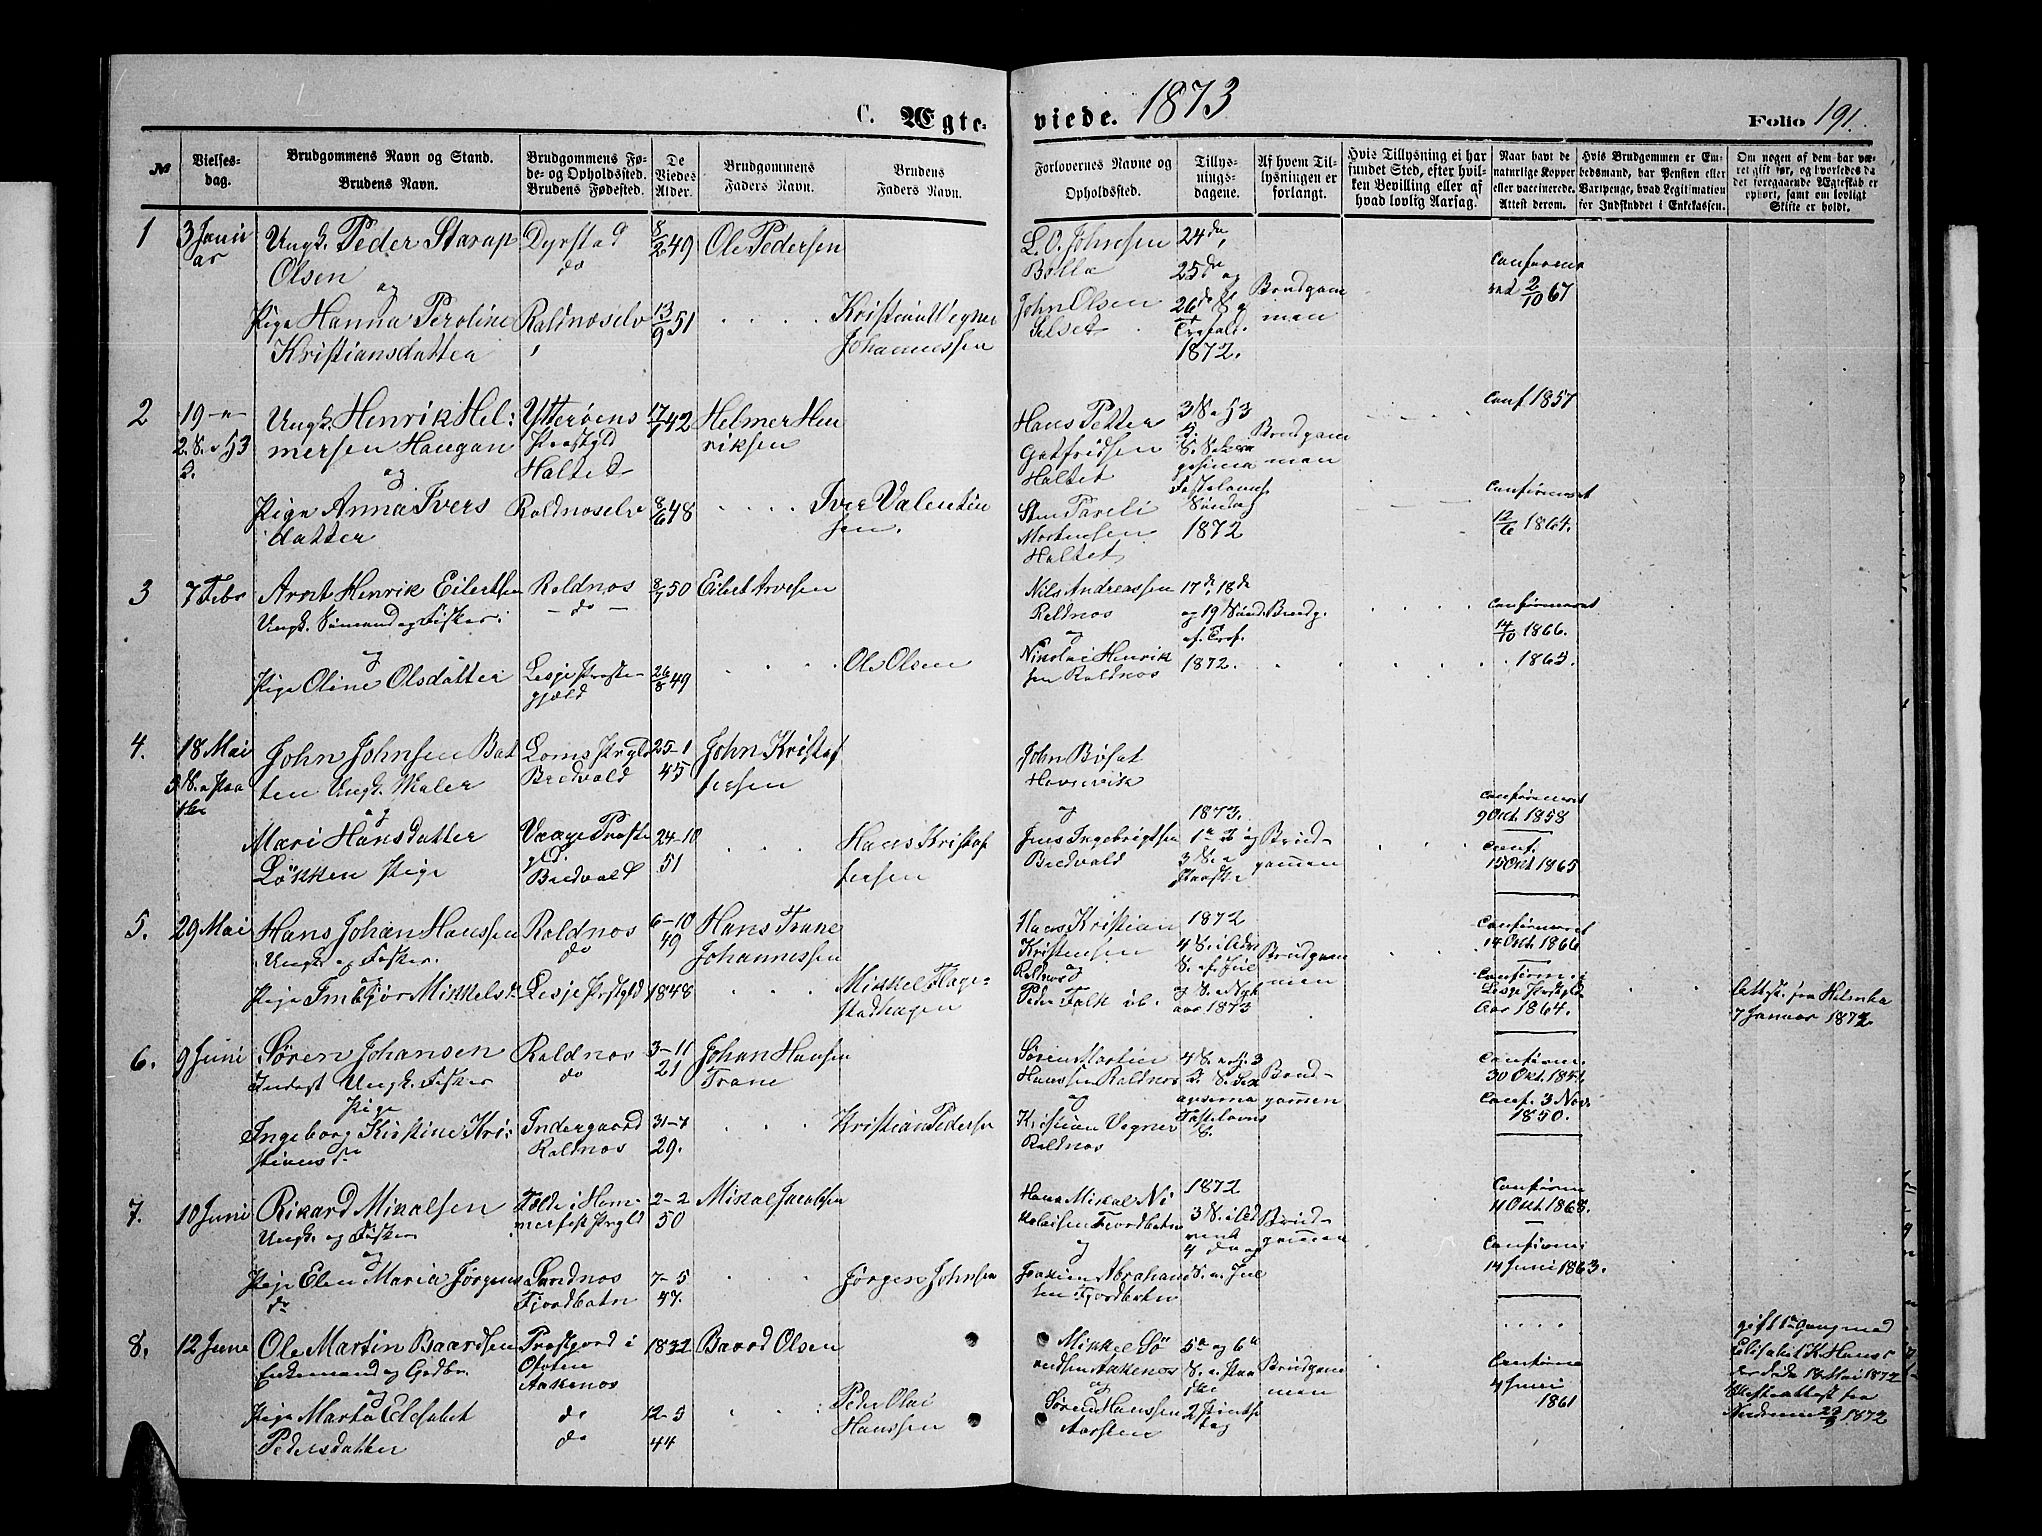 C. Ægte- viede. 1873 Folio 191.
№
Vielses-
dag.
Brudgommens Navn og Stand.
Brudens Navn.
Brudgommens Fø-
de- og Opholdssted.
Brudens Fødested.
De
Viedes
Alder.
Brudgommens
Faders Navn.
Brudens
Faders Navn.
Forlovernes Navne og
Opholdssted.
Tillys-
nings-
dagene.
Af hvem Til-
lysningen er
forlangt.
Hvis Tillysning ei har
fundet Sted, efter hvil-
ken Bevilling eller af
hvad lovlig Aarsag.
Naar havt de
naturlige Kopper
eller vaccinerede.
Attest derom.
Hvis Brudgommen er Em-
bedsmand, har Pension eller
Vartpenge, hvad Legitimation
for Indskuddet i Enkekassen.
Om nogen af dem har væ-
ret gift før, og hvorledes da
det foregaaende Ægteskab er
ophørt, samt om lovligt
Skifte er holdt.
1
3 Janu
ar
Ungk. Peder Starap
Olsen
og
Pige Hanna Peroline
Kristiansdatter
Dyrstad
do
Roldnoselv
8/2 49
13/9 51
Ole Pedersen
Kristian Vegner
Johannessen
L. O. Johnsen
Bolla
John Olsen
Selset
24de,
25de og
26de S. e.
Trefald.
1872.
Brudgom
men
Confirme
red 2/10 67
2
19 -"-
2. S. e. H3
K.
Ungk. Henrik Hel-
mersen Haugan
og
Pige Anna Ivers
datter
Ytterøens
Præstgld
Haltet
Roldnoselv
17/7 42
8/6 48
Helmer Hen
riksen
Iver Valentin
sen.
Hans Petter
Gotfridsen
Haltet
Sten Pareli
Mortensen
Haltet
3 S. e. H3
K.
Fastelavns
Søndag
1872
Brudgom
men
Conf 1857
Confirmeret
12/6 1864.
3
7 Febr
Arnt Henrik Eilertsen
Ungk. Sømand og Fisker.
og
Pige Oline Olsdatter
Roldnos
- do -
Lesje Præste-
gjæld
8/7 50
26/8 49
Eilert Arvesen
Ole Olsen
Nils Andreassen
Roldnos
og
Nikolai Henrik
sen Roldnos
17de, 18de
og 19 Sønd.
ef. Tref.
1872.
Brudg.
Confirmeret
14/10 1866.
1865.
4.
18 Mai
5 S. e. Paa
ske
John Johnsen Bat
ten Ungk. Maler
og
Mari Hansdatter
Løkken Pige
Loms Prgld
Bredvold
Vaage Præste
gld.
Bredvold
25-1
45
24-10
51
John Kristof
fersen
Hans Kristof
fersen
John Bøsat
Havnvik
og
Jens Ingebrigtsen
Bredvold
1873.
1e 2 og
3 S. e.
Paaske
Brud-
gommen
Confirmeret
9 Oct. 1858
Conf.
15 Oct 1865
5.
29 Mai
Hans Johan Hanssen
Ungk. og Fisker.
Pige Imbjør Mikkelsd.
Roldnos
do
Lesje Prstgld
6-10
49
1848
Hans Trane
Johannessen
Mikkel Flage-
stadhagen
Hans Kristian
Kristensen
Roldnos og
Peder Falk ib.
1872
4 S. i Adv.
S. ef. Jul
og S. e. Nyt
aar 1873
Brudgom
men
Confirmeret
14 Oct. 1866
Confirm. i
Lesje Prstgld
Aar 1864.
Attest. fra Helmka
7 Januar 1872
6.
9 Juni
Søren Johansen
Inderst Ungk. Fisker
Pige
Ingeborg Kirstine Kri-
stiansdr
Roldnos
do
Indergaard
Roldnos
3-11
21
31-7
29.
Johan Hansen
Trane
Kristian Pedersen
Søren Martin
Hanssen Roldnos
og
Kristian Vegner
Roldnos
4 S. e. H. 3
K. S. Sex
agesima
Fastelavns
S.
Brud-
gommen
Confirm.
30 Oct. 1851
Conf. 3 Nov.
1850.
7.
10 Juni
Rikard Mikalsen
Ungk. og Fisker
og
Pige Elen Maria Jørgens
dr
Født i Ham-
merfest Prgld
Sandnos
Fjordbotn
2-2
50
7-5
47.
Mikal Jacobsen
Jørgen Johnsen
Hans Mikal Ni
kolaisen Fjordbotn
og
Joakim Abraham
sen Fjordbotn
1872
3 S. i Ad
vent
4 do og
S. e. Jul
Brud-
gommen
Confirm
11 Oct. 1868.
Confirm.
14 Juni 1863.
8.
12 Juni
Ole Martin Baardsen
Enkemand og Gdbr.
og
Pige Marta Elesabet
Pedersdatter
Trostjord i
Ofoten
Aakenos
do
do
1832
12-5
44
Baard Olsen
Peder Olai
Hanssen
Mikkel Sø
rensen Aakenos
og
Søren Hanssen
Aarsten
5te og 6te
S. e. Paa
ske
2 Pintse
dag
Brudgom
men
Confirm
4 Juni
1861
gift 1ste Gang med
Elisabet K. Hans d.
der døde 19 Mai 1872
Skifteattest fra
23/9 1872